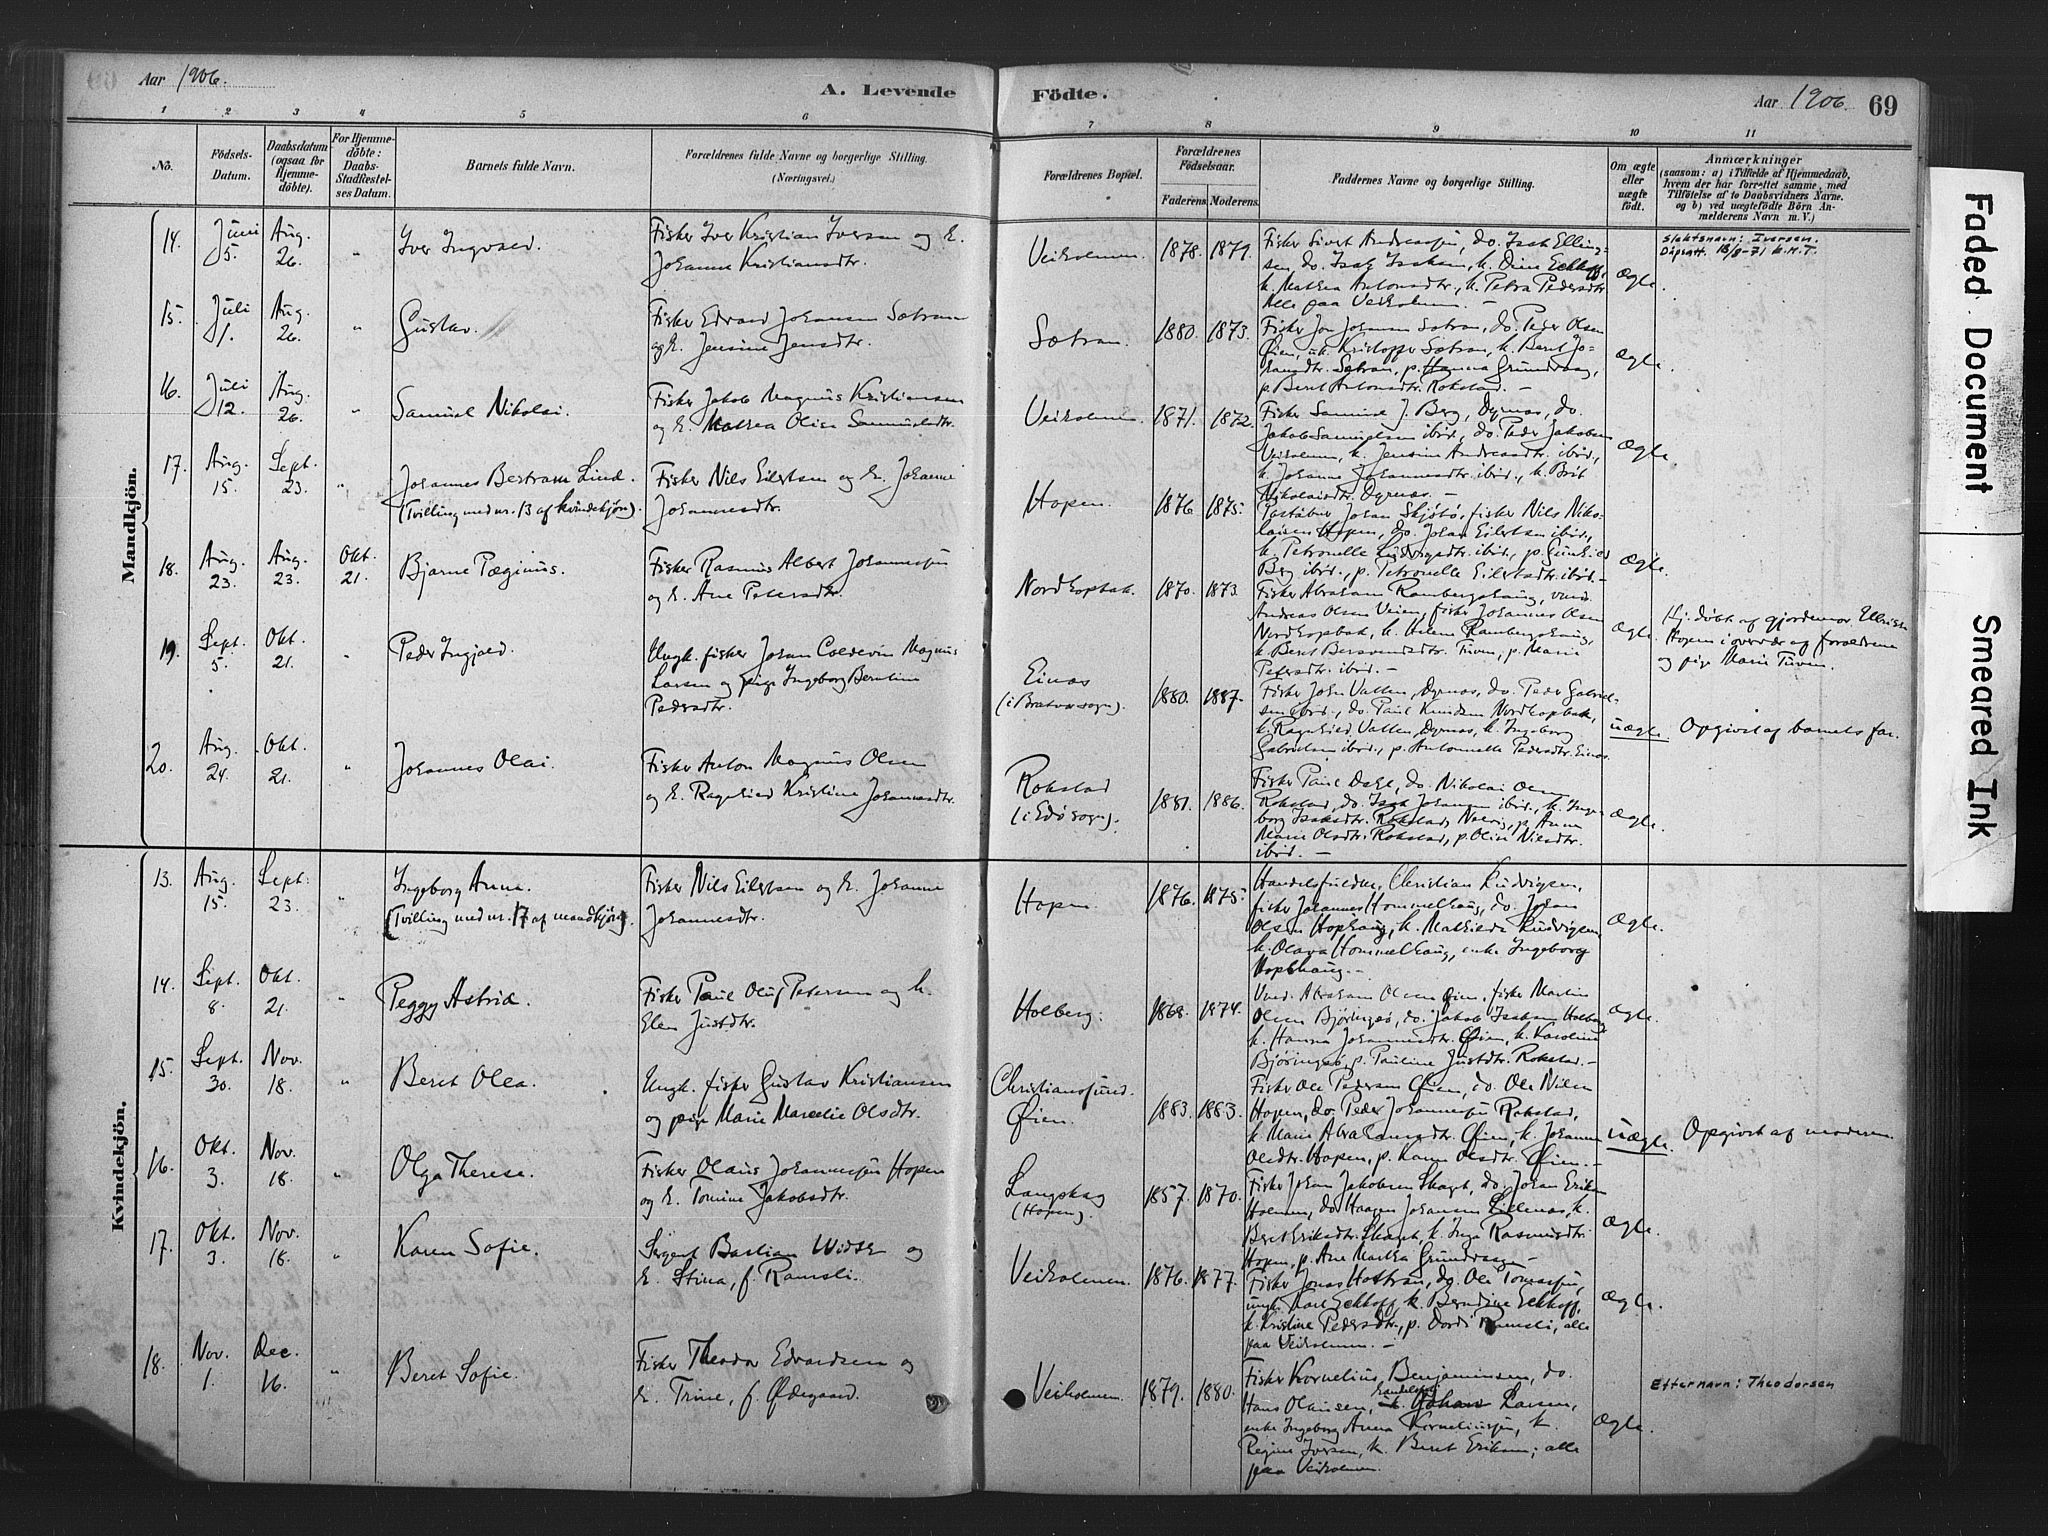 Aar 1906.
A. Levende
Födte.
Aar 1906. 69
1 2 3 4 5 6 7 8 9 10 11
No.
Födsels-Datum.
Daabsdatum (ogsaa for Hjemme-döbte).
For Hjemme-döbte: Daabs-Stadfæstel-ses Datum.
Barnets fulde Navn.
Forældrenes fulde Navne og borgerlige Stilling. (Næringsvei.)
Forældrenes Bopæl.
Forældrenes Födselsaar.
Faderens. Moderens.
Faddernes Navne og borgerlige Stilling.
Om ægte eller uægte födt.
Anmærkninger
(saasom: a) i Tilfælde af Hjemmedaab,
hvem der har forrettet samme, med
Tilföielse af to Daabsvidners Navne.
og b) ved uægtefödte Börn An-
melderens Navn m. V.)
Mandkjön.
14. Juni 5. Aug. 26. " Iver Ingvald.
Fisker Iver Kristian Iversen og h.
Johanne Kristiansdtr.
Veiholmen. 1878. 1879.
Fisker Sivert Andreassen, do. Isak Elling-
sen, do. Isak Isaksen, k. Dina Eckhoff,
k. Mathea Antonsdtr., k. Petra Pedersdtr.
Alle paa Veiholmen. —
Ægte.
Slektsnavn: Iversen.
Dåpsatt. 18/8-71 K.M.T.
15. Juli 1. Aug. 26. " Gustav.
Fisker Edvard Johansen Sætran
og h. Jensine Jensdtr.
Sætran. 1880. 1873.
Fisker Jon Johansen Sætran, do. Peder Olsen
Øien, uk. Kristoffer Sætran, k. Beret Jo-
hansdtr. Sætran, p. Hanna Grundvaag,
p. Beret Antonsdtr. Rokstad. —
Ægte.
16. Juli 12. Aug. 26. " Samuel Nikolai.
Fisker Jakob Magnus Kristiansen
og h. Mathea Olisa Samuelsdtr.
Veiholmen. 1871. 1872.
Fisker Samuel J. Berg, Dyrnæs, do.
Jakob Samuelsen ibid., do. Peder Jakobsen
Veiholmen, k. Jensine Andreasdtr. ibid.,
k. Johanne Johannesdtr. ibid., k. Brit
Nikolaisdtr. Dyrnæs. —
Ægte.
17. Aug. 15. Sept. 23. " Johannes Bertram Lind.
(Tvilling med nr. 13 af kvindekjön).
Fisker Nils Eilertsen og h. Johanne
Johannesdtr.
Hopen. 1876. 1875.
Johan Skjøtø, fisker Nils Niko-
laisen Hopen, do. Johan Eilertsen ibid.,
k. Petronelle Ludvigsdtr. ibid., p. Gunhild
Berg ibid., p. Petronelle Eilertsdtr. ibid. —
Ægte.
18. Aug. 23. Aug. 23. Okt. 21. Bjarne Pæginus.
Fisker Rasmus Albert Johannessen
og h. Ane Petersdtr.
Nordhopbak. 1870. 1873.
Fisker Abraham Rambergshaug,
Andreas Olsen Veien, fisker Johannes Olsen
Nordhopbak, k. Helene Rambergshaug,
k. Beret Tuven, p. Marie
Petersdtr. ibid. —
Ægte.
Hj. døbt af gjordemor
Hopen i overvær af forældrene
og pige Marie Tuven.
19. Sept. 5. Okt. 21. " Peder Ingjald.
Ungk. fisker Johan Coldevin Magnus
Larsen og pige Ingeborg Berntine
Pedersdtr.
Einæs
(i Bratvær sogn). 1880. 1887.
Fisker Johan Vullum, Dyrnæs, do. Peder Gabriel-
sen ibid., do. Paul Knudsen Nordhopbak,
k. Ragnhild Vullum, Dyrnæs, k. Ingeborg
Gabrielsen ibid., p. Antonette Pedersdtr. Einæs.
uægte.
Opgivet af barnets far.
20. Aug. 24. Okt. 21. " Johannes Olai.
Fisker Anton Magnus Olsen
og h. Ragnhild Kristine Johannesdtr.
Rokstad
(i Edø sogn). 1881. 1886.
Fisker Paul Dahl, do. Nikolai Olsen
Rokstad, do. Isak Johansen ibid., k. Inge-
borg Isaksdtr. Rokstad, p. Anne
Marie Olsdtr. Rokstad, p. Oline Nilsdtr.
ibid. —
Ægte.
Kvindekjön.
13. Aug. 15. Sept. 23. " Ingeborg Anna.
(Tvilling med nr. 17 af mandkjön).
Fisker Nils Eilertsen og h. Johanne
Johannesdtr.
Hopen. 1876. 1875.
Handelsfuldm. Christian Ludvigsen,
fisker Johannes Hommelhaug, do. Johan
Olsen Hophaug, k. Mathilde Ludvigsen,
k. Olava Hommelhaug, enke Ingeborg
Hophaug. —
Ægte.
14. Sept. 8. Okt. 21. " Peggy Astrid.
Fisker Paul Oluf Petersen og h.
Elen Justdtr.
Holberg. 1869. 1874.
Abraham Olsen Øien, fisker Martin
Olsen Bjøringsø, do. Jakob Isaksen Holberg,
k. Hanna Johannesdtr. Øien, k. Karoline
Bjøringsø, p. Pauline Justdtr. Rokstad. —
Ægte.
15. Sept. 30. Nov. 18. " Beret Olea.
Ungk. fisker Gustav Kristiansen
og pige Marie Marcelie Olsdtr.
Christianssund.
Øien. 1883. 1883.
Fisker Ole Pedersen Øien, do. Ole Nilsen
Hopen, do. Peder Johannessen Rokstad,
k. Marie Abrahamsdtr. Øien, k. Johanne
Olsdtr. Hopen, p. Karen Olsdtr. Øien. —
uægte.
Opgivet af moderen.
16. Okt. 3. Nov. 18. " Olga Therese.
Fisker Olaus Johannessen Hopen
og h. Tomine Jakobsdtr.
Langskag
(Hopen). 1857. 1870.
Fisker Johan Jakobsen Skaget, do. Johan Eriksen
Holmen, do. Haagen Johansen Lillenæs, k.
Beret Eriksdtr. Skaget, k. Inga Rasmusdtr.
Hopen, p. Ane Marthea Grundvaag. —
Ægte.
17. Okt. 3. Nov. 18. " Karen Sofie.
Sergent Bastian Widsø og
h. Stina, f. Ramsli.
Veiholmen. 1876. 1877.
Fisker Jonas Hottran, do. Ole Tomassen,
ungk. Karl Eckhoff, k. Berntine Eckhoff,
k. Kristine Pedersdtr., p. Dordi Ramsli, alle
paa Veiholmen. —
Ægte.
18. Nov. 1. Dec. 16. " Beret Sofie.
Fisker Theodor Edvardsen og
h. Trine, f. Ødegaard.
Veiholmen. 1879. 1880.
Fisker Kornelius Benjaminsen, do.
Hans Olausen, Johan Larsen,
enke Ingeborg Anna Korneliussen, k.
Regine Iversen, k. Beret Eriksen; alle
paa Veiholmen.
Ægte.
Etternavn: Theodorsen
Faded Document
Smeared Ink